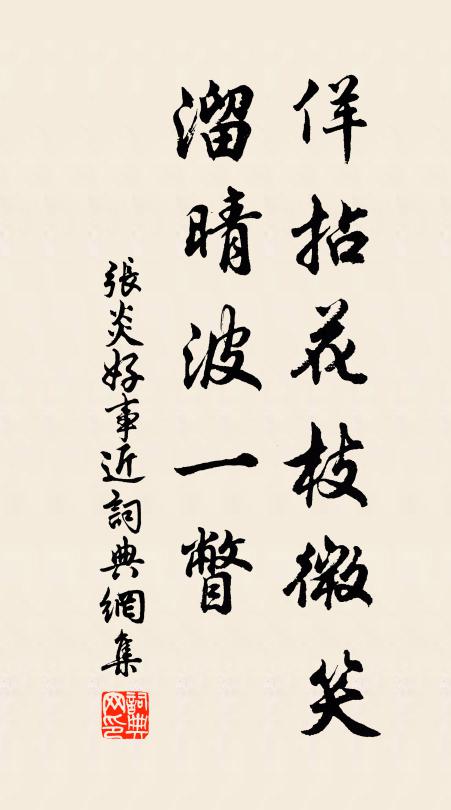 佯拈花枝微笑
溜晴波一瞥
張炎好事近詞典網集
詞典網印